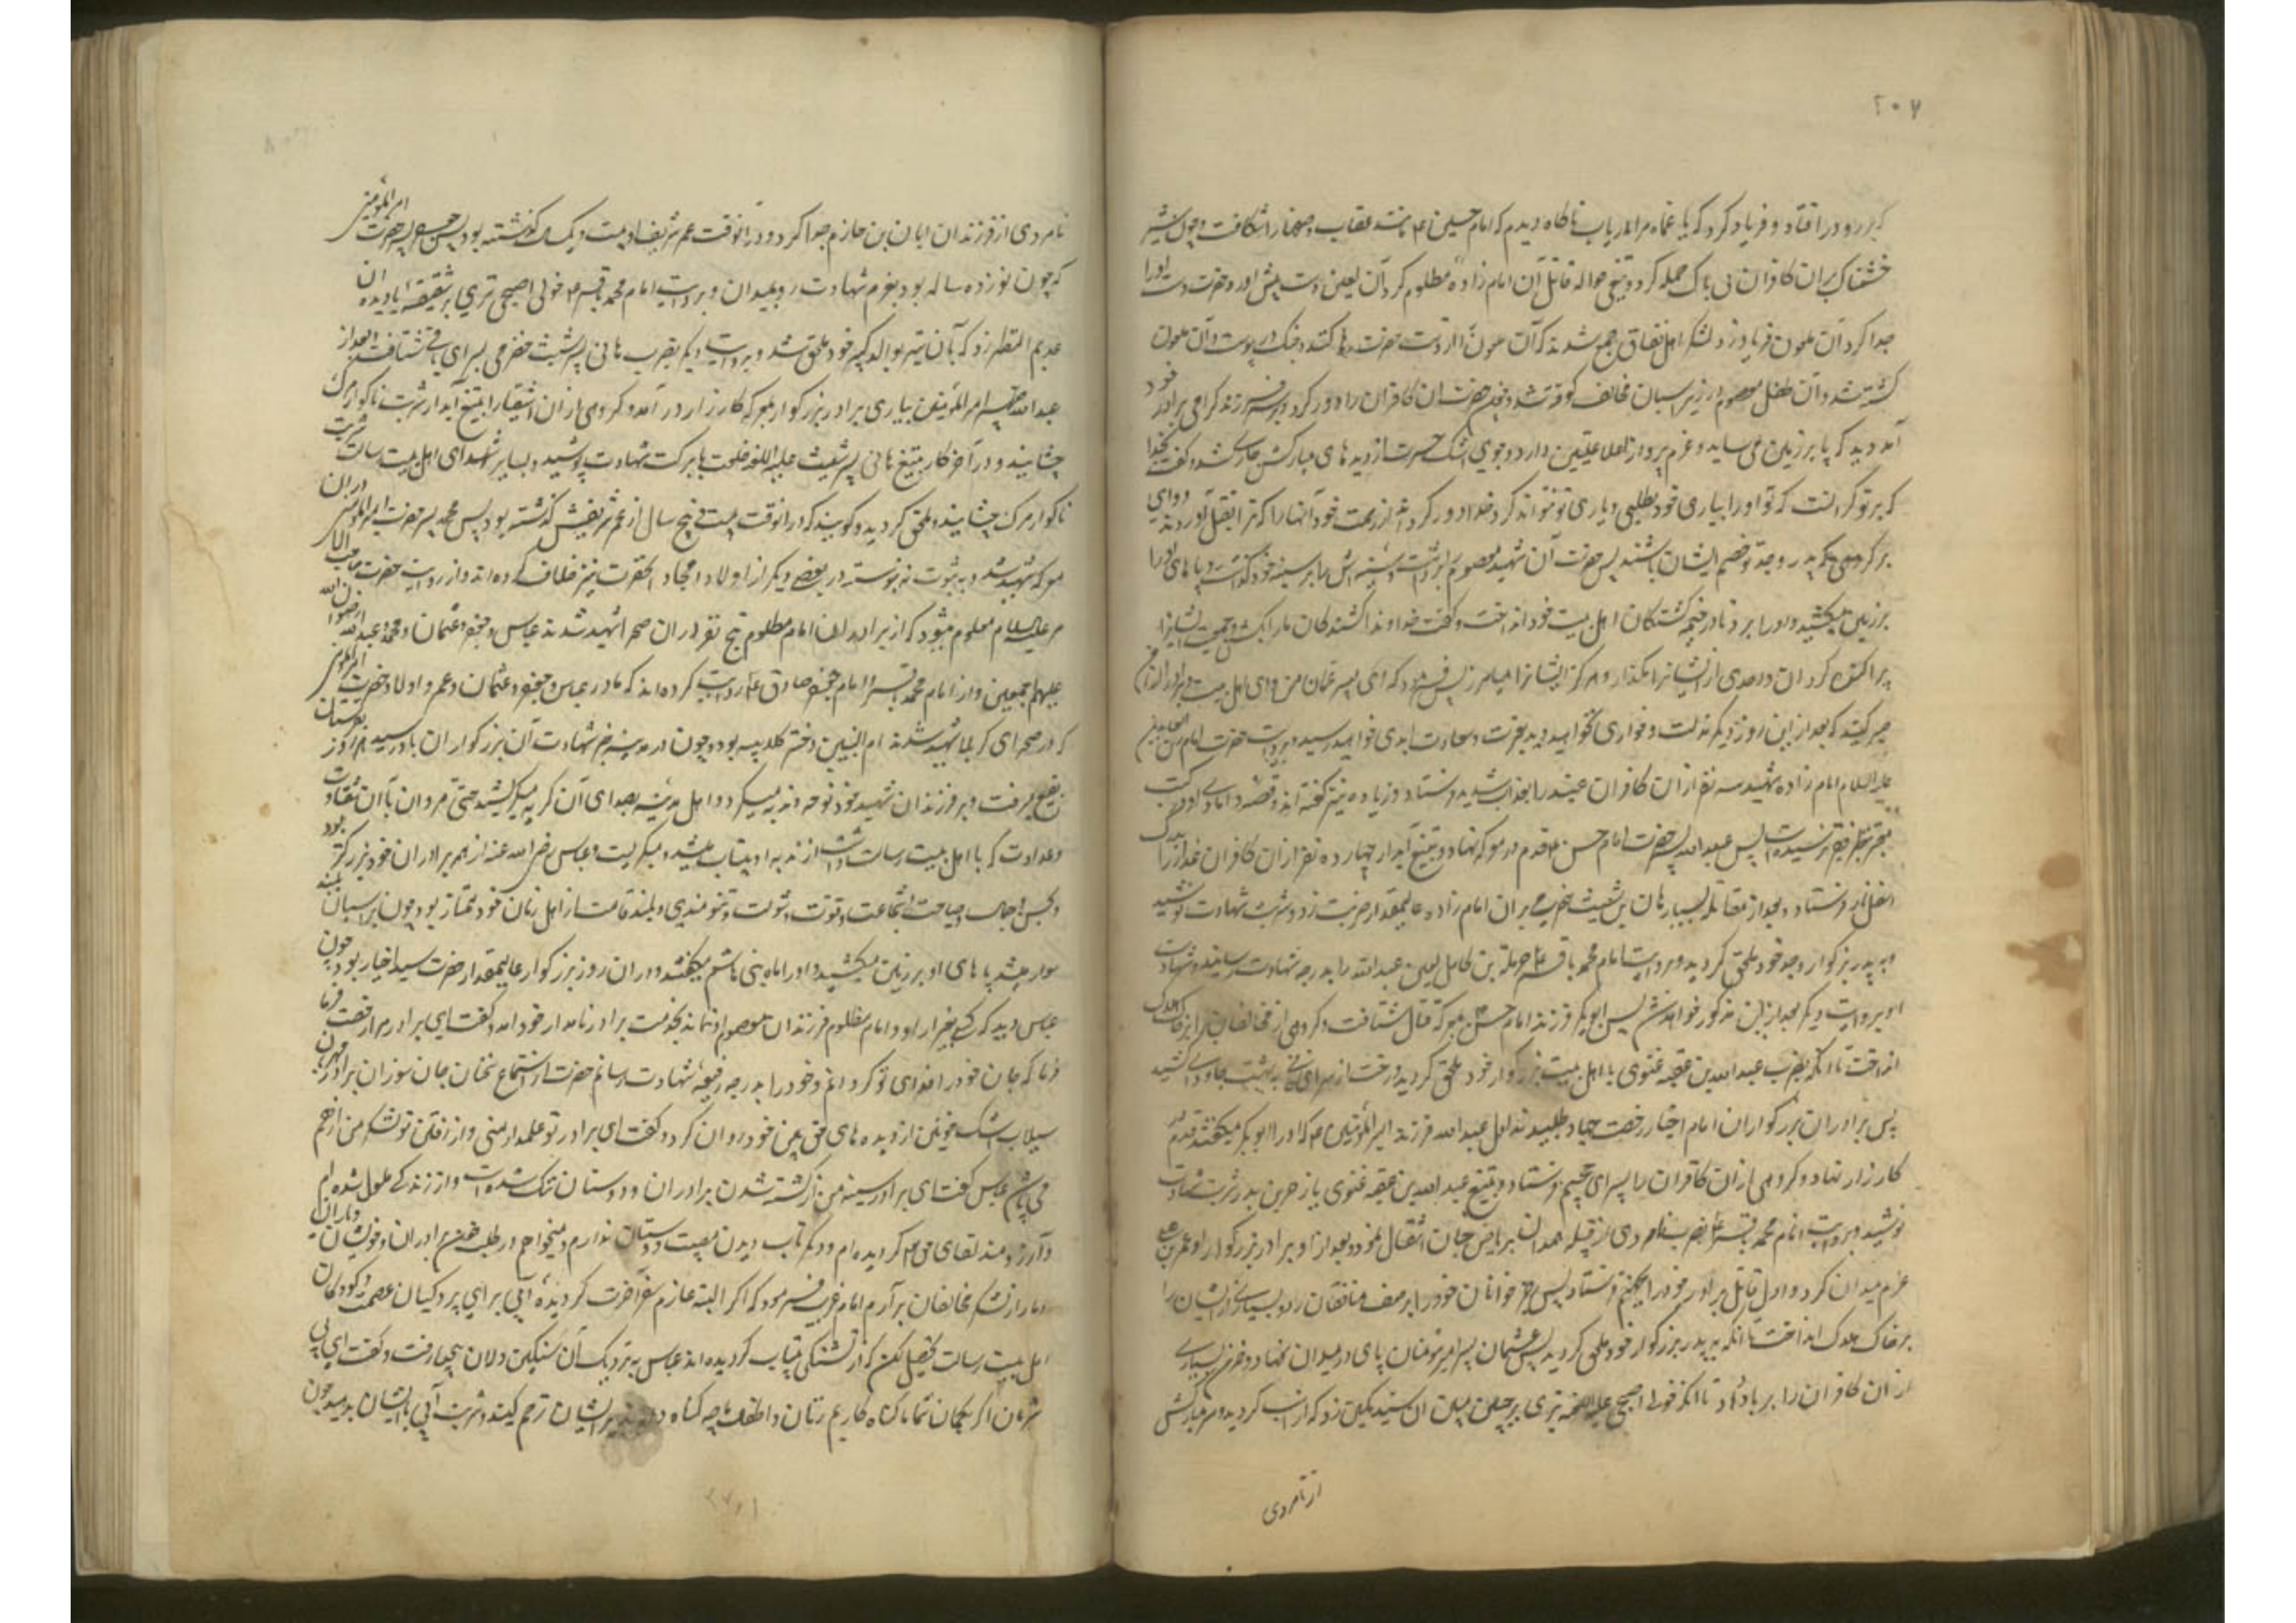 ۲۰۷
که بر رو در افتاد و فریاد کرد که یا عماه مرا دریاب ناکاه دیدم که امام حسین ع مانند عقاب صفها را شکافت و چون شیر
خشمناک بران کافران بی باک حمله کرد و تیغی حواله قاتل آن امام زاده مظلوم کرد آن لعین دست پیش آورد حضرت دست اورا
جدا کرد آن ملعون فریاد زد لشکر اهل نفاق جمع شدند که آن ملعون را از دست حضرت رها کنند و جنک در پیوست و آن ملعون
کشته شد و آن طفل معصوم در زیر اسبان مخالف کوفته شد و چون حضرت آن کافران را دور کرد و بر سر فرزند کرامی برادر خود
آمد دید که پا بر زمین می ساید و عزم پرواز اعلا علیین دارد و جوی اشک حسرت از دیده های مبارکش جاری شد و کفت بخدا
که بر تو کران است که تو اورا بیاری خود بطلبی و یاری تو نتواند کرد خدا دور کرداند از رحمت خود آنها را که ترا بقتل آوردند و وای
بر کروهی که پدر و جد تو خصم ایشان باشند پس حضرت آن شهید معصوم برداشت و سینه اش را بر سینه خود کذاشت و پاهای اورا
بر زمین میکشید و اورا برد تا در خیمه کشتکان اهل بیت خود انداخت و کفت خداوندا کشندکان ما را بکش و جمعیت ایشانرا
پراکنده کردان و احدی از ایشانرا مکذار و هرکز ایشانرا میامرز پس فرمود که ای پسر عمان من و ای اهل بیت و برادران من
صبر کنید که بعد از این روز دیکر مذلت و خواری نخواهید دید بعزت و سعادت ابدی خواهید رسید و بروایت حضرت امام زین العابدین
علیه السلام امام زاده شهید سه نفر از آن کافران عنید را بعذاب شدید فرستاد و زیاده نیز کفته اند و قصه دامادی او در کتب
معتبره بنظر فقیر نرسیده است پس عبد الله پسر حضرت امام حسن ع قدم در معرکه نهاد و بتیغ آبدار چهارده نفر از آن کافران غدار را
اسفل نار فرستاد و بعد از مقاتله بسیار هانی بن شعیث خضرمی بر آن امام زاده عالیمقدار ضربت زد و شربت شهادت نوشید
و به پدر بزرکوار وجد خود ملحق کردید و بروایت امام محمد باقر ع حرمله بن کاهل لعین عبد الله را بدرجه شهادت رسانید و شهادت
او بروایت دیکر بعد از این مذکور خواهد شد پس ابوبکر فرزند امام حسن بمعرکه قتال شتافت و کروهی از مخالفان را بر خاک هلاک
انداخت تا آنکه بضرب عبد الله بن عقبه غنوی با اهل بیت بزرکوار خود ملحق کردید و رخت از سرای فانی به بهشت جاودانی کشید
پس برادران بزرکوار آن امام اخیار رخصت جهاد طلبیدند اول عبد الله فرزند امیر المؤمنین ع که اورا ابوبکر میکفتند قدم در
کارزار نهاد و کروهی از آن کافران را بسرای جحیم فرستاد و بتیغ عبد الله بن عقبه غنوی یا زحر بن بدر شربت شهادت
نوشید و بروایت امام محمد باقر ع بضرب نامردی از قبیله همدان بریاض جنان انتقال نمود و بعد از او برادر بزرکوار او عمر بن علی
عزم میدان کرد و اول قاتل برادر خود را بجهنم فرستاد پس خود را بر صف منافقان زد و بسیاری از ایشان را
بر خاک هلاک انداخت تا آنکه به پدر بزرکوار خود ملحق کردید پس عثمان پسر امیر مومنان پای در میدان نهاد و خرمن بسیاری
از آن کافران را بر باد داد تا آنکه خولی اصبحی علیه اللعنه تیری بر جبین مبین آن زد که از اسب کردید و سر مبارکش
از نامردی
نامردی از فرزندان ابان بن حازم جدا کرد و در آنوقت عمر شریف او بیست و یک سال کذشته بود پس جعفر پسر حضرت امیر المؤمنین
که چون نوزده ساله بود بعزم شهادت رو بمیدان و بروایت امام محمد باقر ع خولی اصبحی تیری بر شقیقه یا دیده آن
عدیم النظیر زد که بآن تیر بوالد کبیر خود ملحق شد و بروایت دیکر بضرب هانی پسر شبیث حضرمی بسرای باقی شتافت و بعد از
عبد الله پسر امیر المؤمنین بیاری برادر بزرکوار بمعرکه کارزار در آمد و کروهی از آن اشقیا را بتیغ آبدار شربت ناکوار مرک
چشانید و در آخر کار بتیغ هانی پسر شبیث علیه اللعنه خلعت با برکت شهادت پوشید و بسایر شهدای اهل بیت رسالت شربت
ناکوار مرک چشانیده ملحق کردید و کویند که در آنوقت بیست و پنج سال از عمر شریفش کذشته بود پس محمد پسر حضرت امیر المؤمنین در آن
معرکه شهید شد و به ثبوت نه پیوسته در بعضی دیکر از اولاد امجاد آنحضرت نیز خلاف کرده اند و از روایت حضرت صاحب الامر
علیه السلام معلوم میشود که از برادران امام مظلوم پنج نفر در آن صحرا شهید شدند عباس و جعفر و عثمان و محمد و عبد الله رضوان الله
علیهم اجمعین و از امام محمد باقر و امام جعفر صادق ع روایت کرده اند که مادر عباس و جعفر و عثمان و عمر و اولاد حضرت امیر المؤمنین
که در صحرای کربلا شهید شدند ام البنین دختر کلابیه بود و چون در مدینه خبر شهادت آن بزرکواران باو رسید هر روز بقبرستان
بقیع میرفت و بر فرزندان شهید خود نوحه و ندبه میکرد و اهل مدینه بصدای آن کریه میکریستند حتی مروان با آن شقاوت
و عداوت که با اهل بیت رسالت داشت از ندبه او بیتاب میشد و میکریست و عباس رضی الله عنه از همه برادران خود بزرکتر بود
و بحسن و جمال و صباحت و شجاعت و قوت و شوکت و تنومندی و بلند قامت از اهل زمان خود ممتاز بود چون بر اسبان بلند
سوار میشد پاهای او بر زمین میکشید و اورا ماه بنی هاشم میکفتند و در آن روز بزرکوار عالیمقدار حضرت سید اخیار بود چون
عباس دید که کسی بغیر از او و امام مظلوم فرزندان معصوم او نماند بخدمت برادر نامدار خود آمد و کفت ای برادر مرا رخصت فرما
فرما که جان خود را فدای تو کردانم و خود را بدرجه رفیعه شهادت رسانم حضرت از استماع سخنان جان سوز آن برادر مهربان
سیلاب اشک خونین از دیده های حق بین خود روان کرد و کفت ای برادر تو علمدار منی و از رفتن تو لشکر من از هم
می پاشد عباس کفت ای برادر سینه من از کشته شدن برادران و دوستان تنک شده است و از زندکی ملول شده ام
و آرزومند لقای حق کردیده ام و دیکر تاب دیدن مصیبت دوستان ندارم و میخواهم در طلب خون برادران و خویشان و یاران
دمار از لشکر مخالفان بر آرم امام غریب فرمود که اکر البته عازم سفر آخرت کردیده آبی برای پردکیان عصمت و کودکان
اهل بیت رسالت تحصیل کن که از تشنکی بیتاب کردیده اند عباس به نزدیک آن سنکین دلان بیحیا رفت و کفت ای بی
شرمان اکر بکمان شما ما کناه کاریم زنان و اطفال ما چه کناه دارند بر ایشان ترحم کنید و شربت آبی بایشان بدهید چون